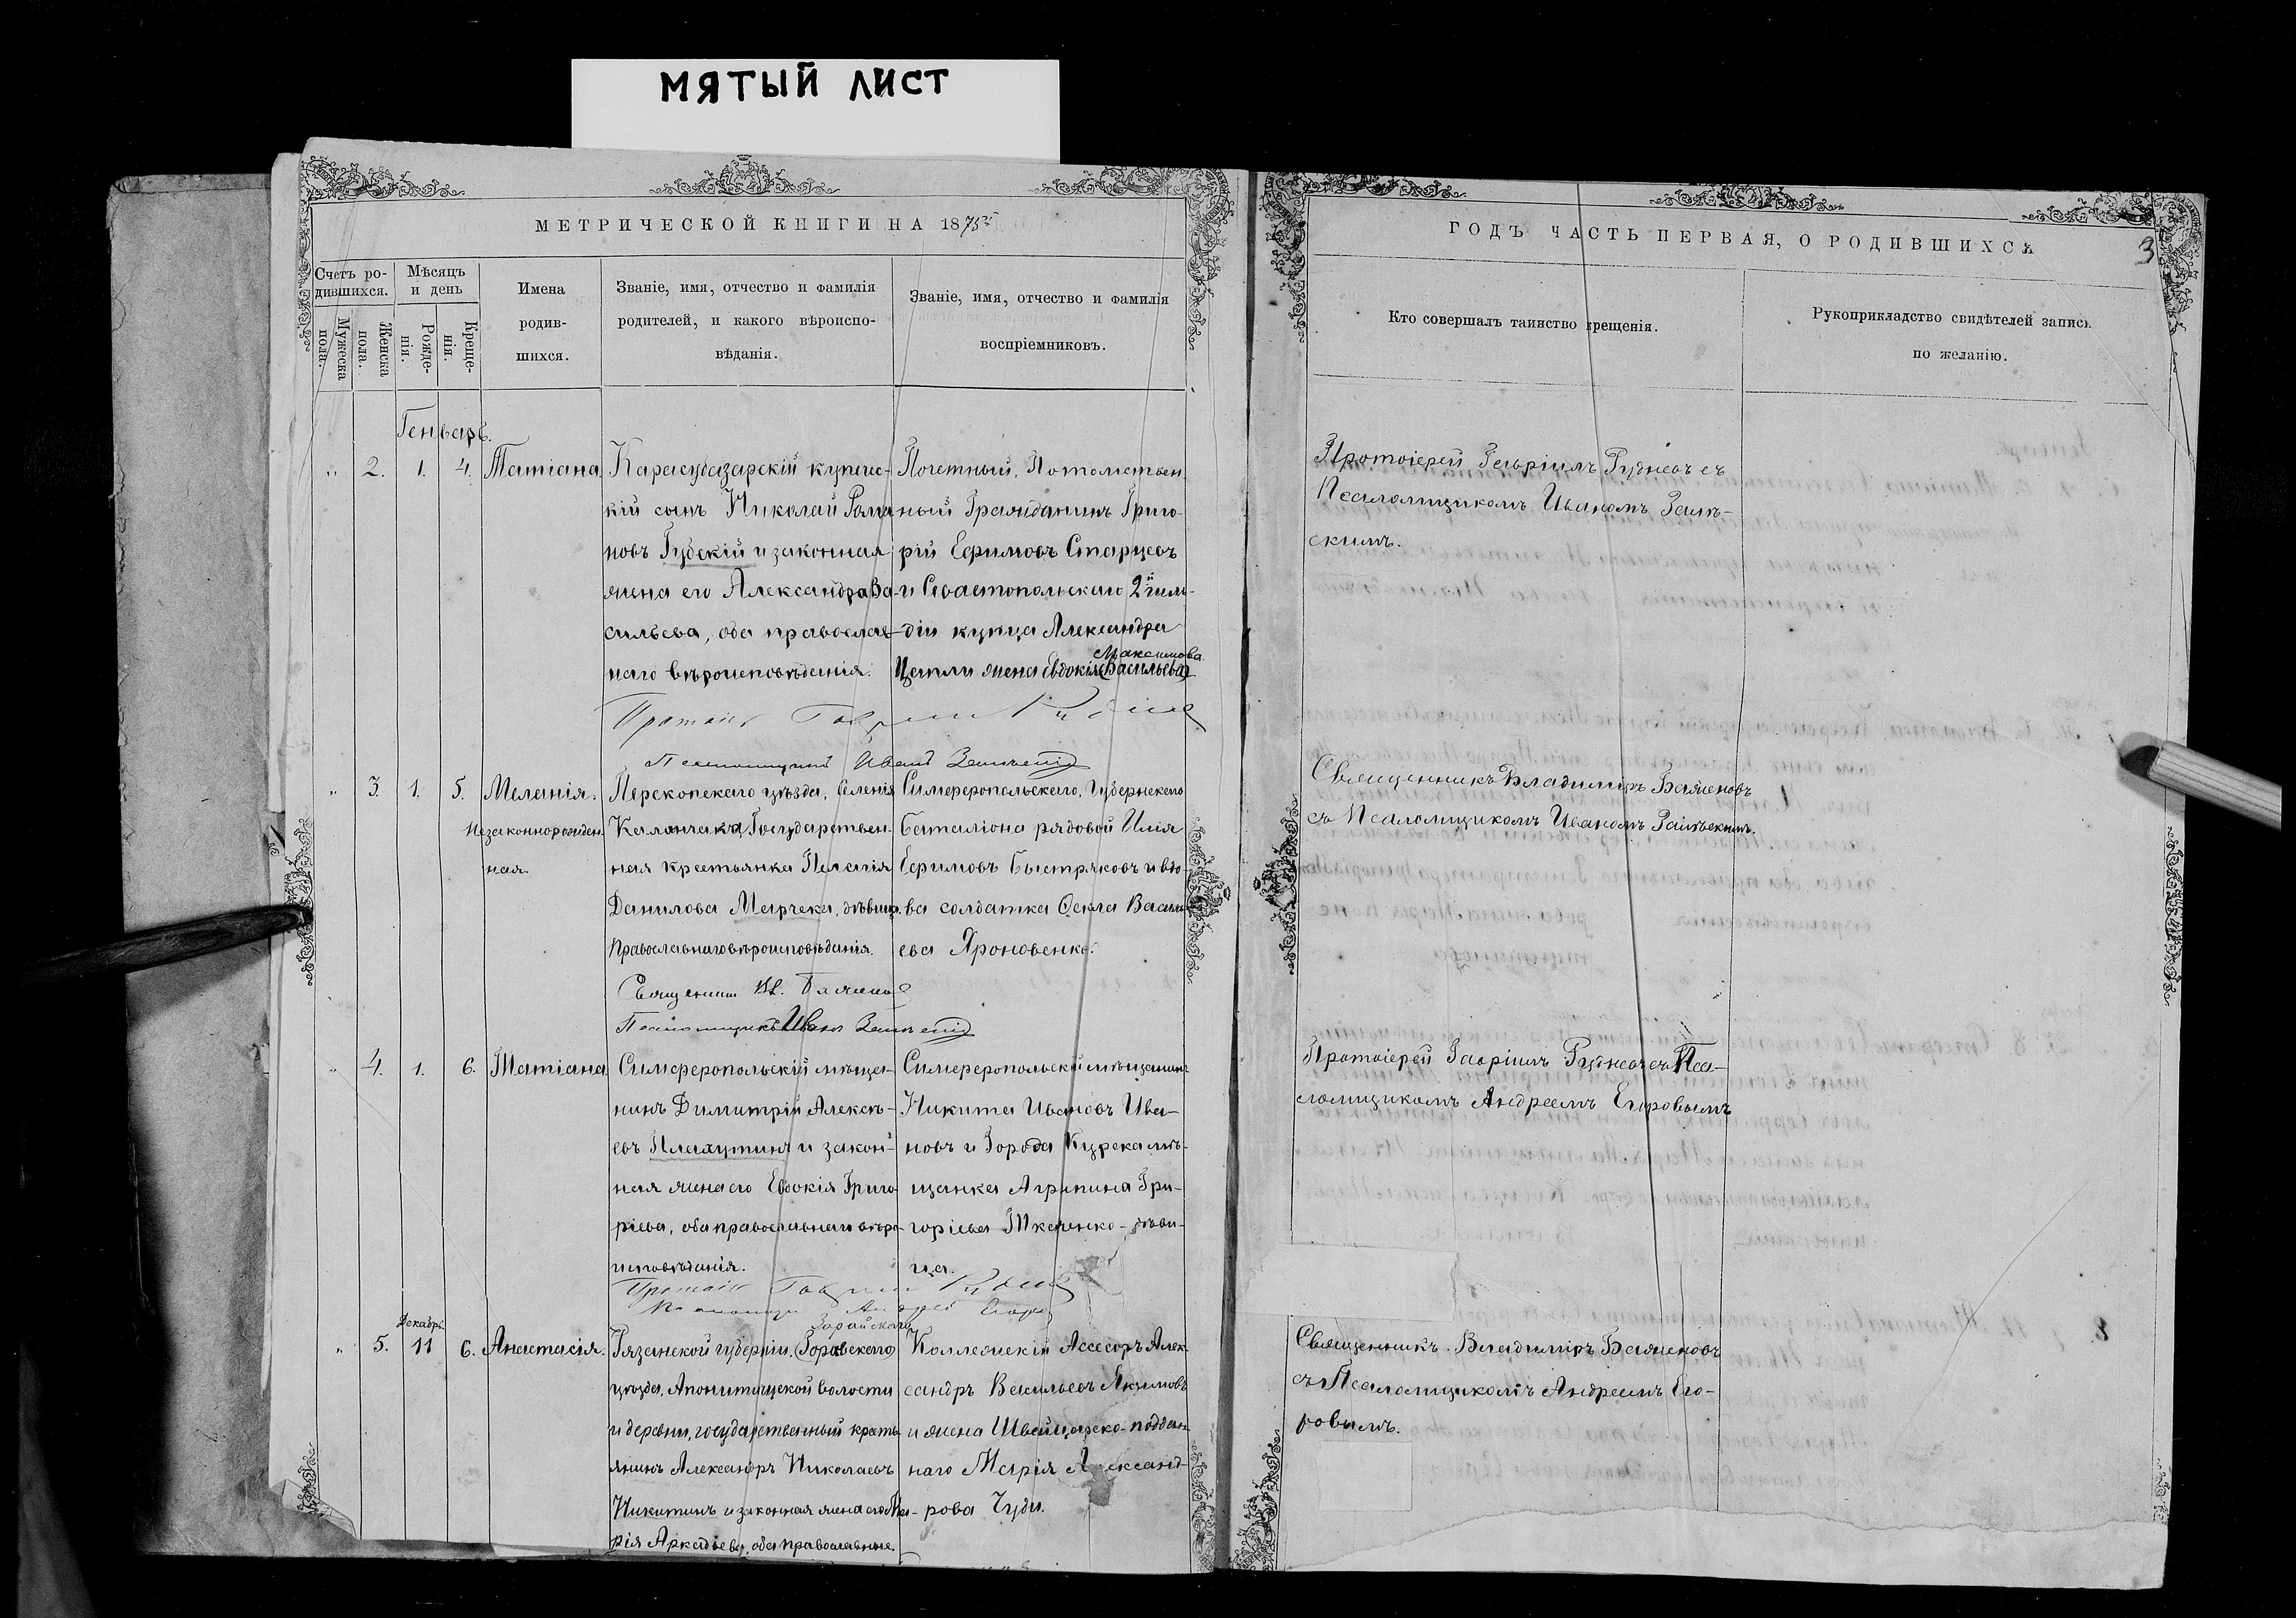 МЯТЫЙ ЛИСТ
МЕТРИЧЕСКОЙ КНИГИ НА 1875
ГОДЪ ЧАСТЬ ПЕРВАЯ, О РОДИВШИХСЯ
3
Счетъ ро-
дившихся.
Мужеска
пола.
Женска
пола.
Мѣсяцъ
и день
Рожде-
нія.
Креще-
нія.
Имена
родив-
шихся.
Званіе, имя, отчество и фамилія
родителей, и какого вѣроиспо-
вѣданія.
Званіе, имя, отчество и фамилія
воспріемниковъ.
Кто совершалъ таинство крещенія.
Рукоприкладство свидѣтелей записи
по желанію.
Генварь.
" 2. 1. 4. Татіана.
Карасубазарскій купече-
кій сынъ Николай Рома
новъ Губскій и законная
жена его Александра Ва-
сильева, оба православ-
наго вѣроисповѣданія.
Почетный, Потомствен
ный Гражданинъ Григо-
рій Ефимовъ Старцевъ
и Севастопольскаго 2й гиль-
діи купца Александра
Максимова
жена Евдокія (Васильева)
Протоіерей Гавріилъ Рудневъ съ
Псаломщикомъ Иваномъ
скимъ.
Псаломщикъ Иванъ
" 3. 1. 5. Меланія.
Незаконнорожден-
ная.
Перекопскаго уѣзда, селенія
Каланчака, Государствен-
ная крестьянка Пелагія
Данилова Марчека, дѣвица.
Православнаго вѣроисповѣданія.
Симферопольскаго, Губернскаго
баталіона рядовой Илія
Ефимовъ Быстряковъ и вдо-
ва солдатка Фекла Василь-
ева Яроновенко.
Священникъ Владиміръ Баженовъ
съ Псаломщикомъ Иваномъ
Священникъ Вл. Баженовъ
Псаломщикъ Иванъ
" 4. 1. 6. Татіана
Симферопольскій мѣща-
нинъ Димитрій Алексѣ-
евъ Плахутинъ и закон-
ная жена его Евдокія Григо
ріева, оба православнаго вѣро-
исповѣданія.
Симферопольскій мѣщанинъ
Никита Ивановъ Ива-
новъ и Города Курска мѣ-
щанка Агрипина Гри-
горіева Ткаченко - дѣви-
ца.
Протоіерей Гавріилъ Рудневъ съ Пса-
ломщикомъ Андреемъ Егоровымъ
Декабрь.
" 5. 11 6. Анастасія.
Зарайскаго
Рязанской губерніи,
уѣзда, волости
и деревни, государственный кресть
янинъ Александръ Николаевъ
Никитинъ и законная жена его Ма-
рія Аркадьева, оба православные.
Коллежскій Ассесоръ Алек-
сандръ Васильевъ Якимовъ
и жена Швейцарско-поддан
наго Марія Александ-
рова Чуди.
Священникъ Владиміръ Баженовъ
съ Псаломщикомъ Андреемъ Его-
ровымъ.